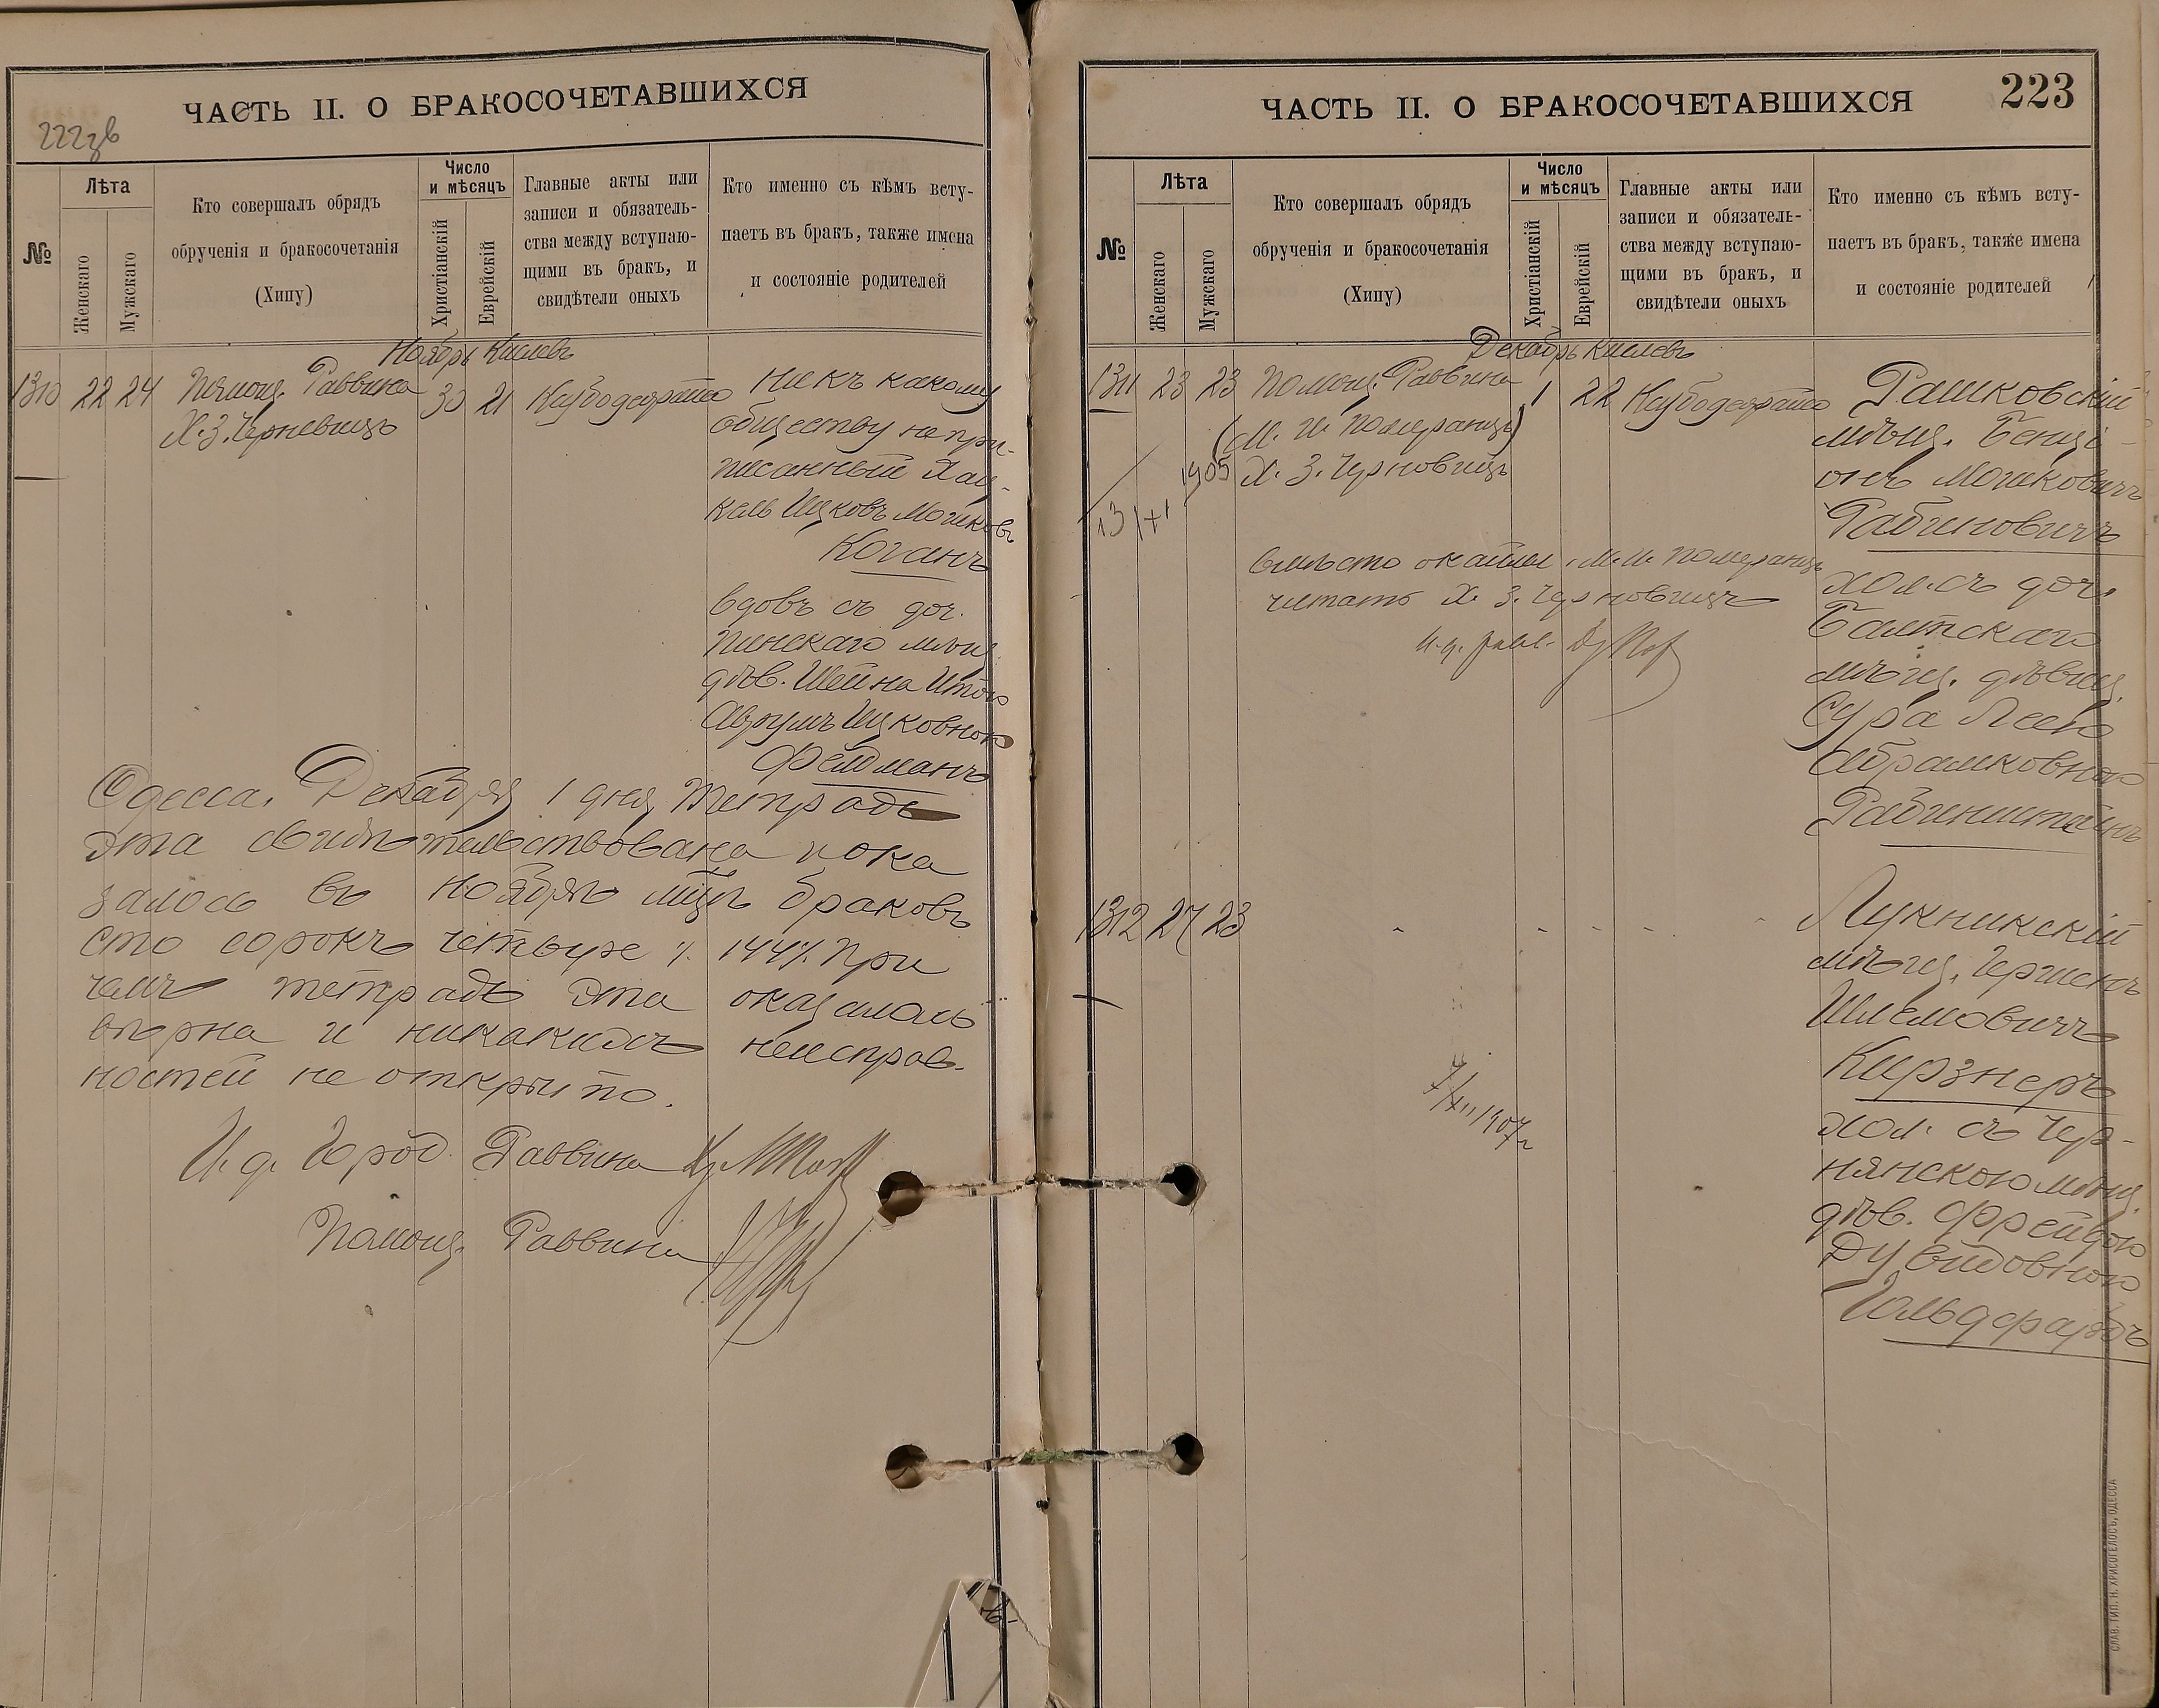 ЧАСТЬ II. О БРАКОСОЧЕТАВШИХСЯ
222
№
Лѣта
Женскаго
Мужскаго
Кто совершалъ обрядъ
обрученія и бракосочетанія
(Хипу)
Число
и мѣсяцъ
Христіанскій
Еврейскій
Главные акты или
записи и обязатель-
ства между вступаю-
щими въ бракъ, и
свидѣтели оныхъ
Кто именно съ кѣмъ всту-
паетъ въ бракъ, также имена
и состояніе родителей
Ноябрь Кислевъ
1310 22 24 Помощ. Раввина 30 21
Х. З. Черновицъ
Ни къ какому
обществу не при-
писанный Хац-
кель Ицковъ Мошковъ
Коганъ
вдовъ съ доч.
Пинскаго мѣщ.
дѣв. Шейна Итою
Аврумъ Ицковною
Фельдманъ
Одесса. Декабря 1 дня тетрадь
эта свидѣтельствована и ока
залось въ Ноябрѣ мцѣ браковъ
сто сорокъ четыре ./. 144 ./. При
чемъ тетрадь эта оказалась
вѣрна и никакихъ неисправ-
ностей не открыто.
И. д. Город. Раввина
Помощ. Раввина
ЧАСТЬ II. О БРАКОСОЧЕТАВШИХСЯ
223
№
Лѣта
Женскаго
Мужскаго
Кто совершалъ обрядъ
обрученія и бракосочетанія
(Хипу)
Число
и мѣсяцъ
Христіанскій
Еврейскій
Главные акты или
записи и обязатель-
ства между вступаю-
щими въ бракъ, и
свидѣтели оныхъ
Кто именно съ кѣмъ всту-
паетъ въ бракъ, также имена
и состояніе родителей
Декабрь Кислевъ
1311 23 23 Помощ. Раввина 1 22
(М. И. Померанцъ)
Х. З. Черновицъ
13/XI 1905
вмѣсто окайм. М. И. Померанцъ
читать Х. З. Черновицъ
и. д. равв.
Рашковскій
мѣщ. Бенці-
онъ Мошковичъ
Рабиновичъ
хол. съ доч.
Балтскаго
мѣщ. дѣвиц.
Сура Леею
Абрамковною
Рабинштейнъ
1312 27 23 - - - - -
7/XII 1907 г
Лукникскій
мѣщ. Гершенъ
Шлемовичъ
Кирзнеръ
хол. съ Чер-
нянскою мѣщ.
дѣв. Фрейдою
Дувидовною
Гольдфарбъ
СЛАВ. ТИП. Н. ХРИСОГЕЛОСЪ, ОДЕССА